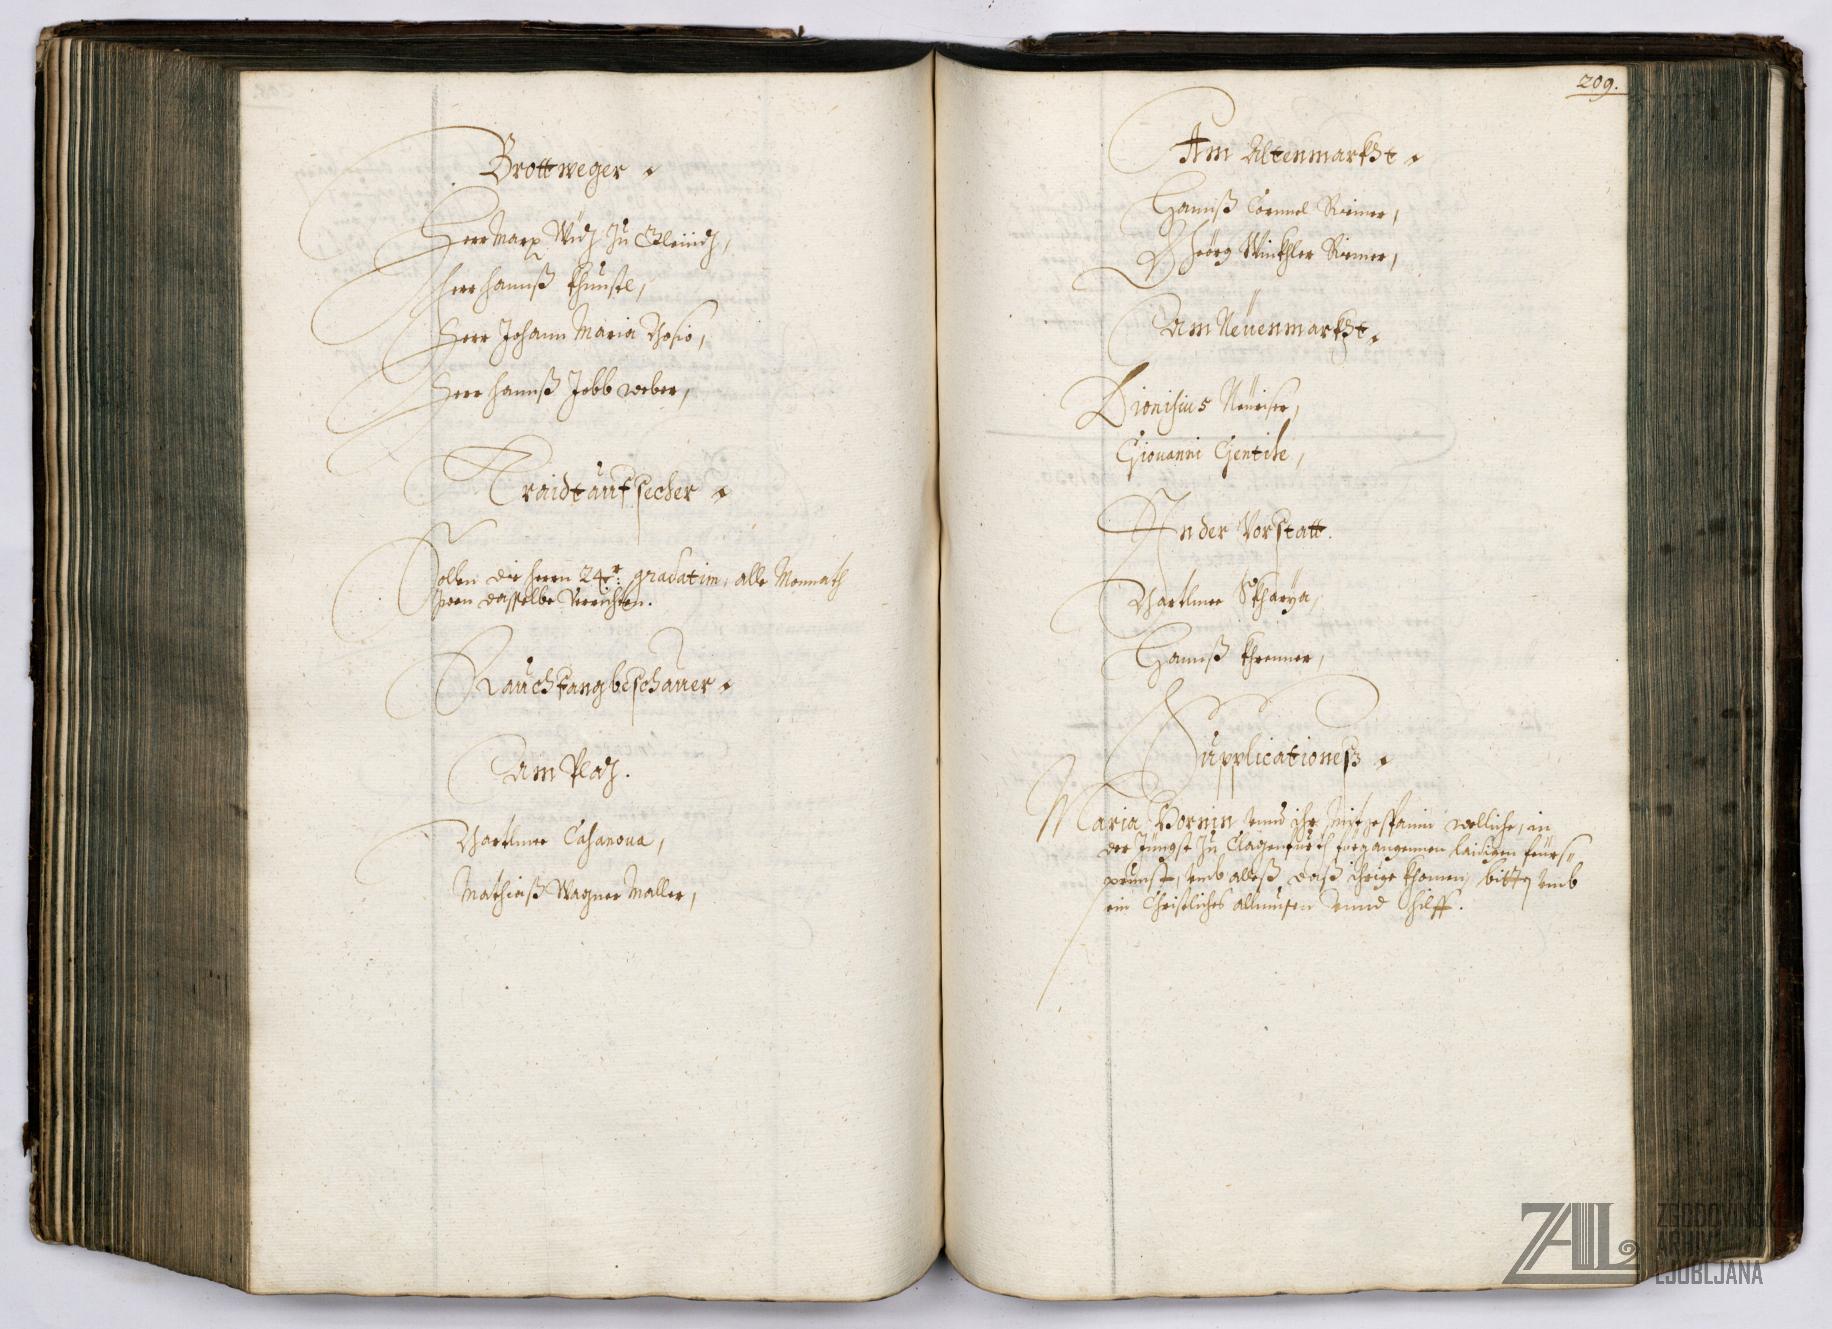 Brottweger
Herr Marx Widz Zu Gleinidz,
Herr Hannß Khunstl,
Herr Johann Maria Bosio,
Herr Hannß Jobb weber,
Traidtaufsecher
Sollen die herrn 24er: gradatim, alle Monnath
zwen dasselbe Verrichten.
Rauchfangbeschauer
Am Platz.
Barthlmee Casanova,
Mathiaß Wagner Maller,
209.
Am Altenmarkht
Hannß Riemer,
Georg Winkhler Riemer,
Am Neüenmarkht
Dionisius
Giouanni Gentile,
In der Vorstatt.
Barthlmee Skharya,
Hannß Khrenner,
Supplicationeß
Maria Hornin vnnd ihr welliche, in
der Jüngst Zu Clagenfurth fürgangennen laidigen feürs
prunst, vmb alleß daß ihrige khomen, bitten vmb
ein Christliches allmusen vnnd hilff.
ZAL
ZGODOVINSKI
ARHIV
LJUBLJANA